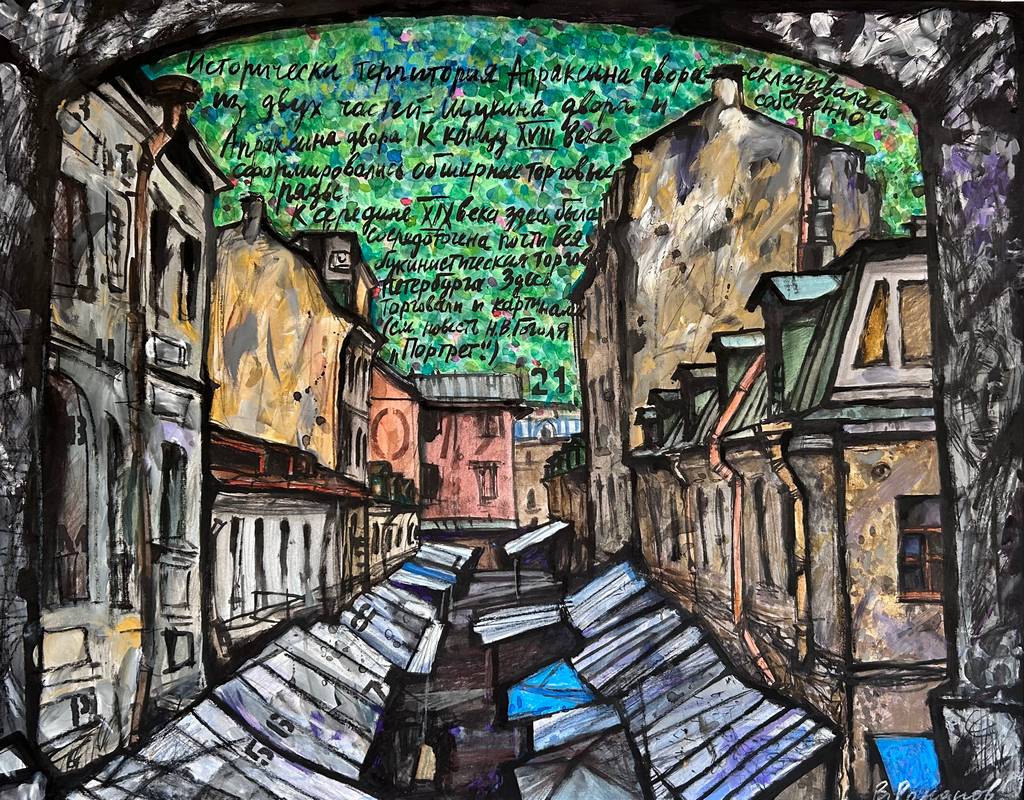 Исторически территория Апраксина двора складывалась
из двух частей - Щукина двора и собственно
Апраксина двора. К концу XVIII века
сформировались обширные торговые
ряды.
К середине XIX века здесь была
сосредоточена почти вся
букинистическая торгов
Петербурга. Здесь
торговали и картинами
(см. повесть Н.В. Гоголя
„Портрет")
21
В. Романов